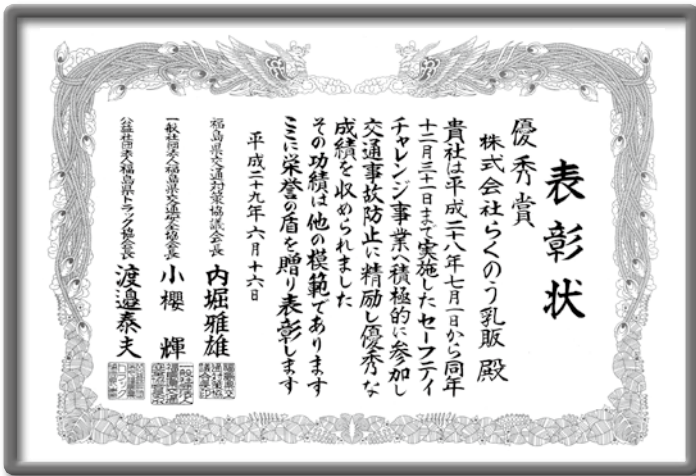 表彰状
優秀賞
株式会社らくのう乳販 殿
貴社は平成二十八年七月一日から同年
十二月三十一日まで実施したセーフティ
チャレンジ事業へ積極的に参加し
交通事故防止に精励し優秀な
成績を収められました
その功績は他の模範であります
ここに栄誉の盾を贈り表彰します
平成二十九年六月十六日
福島県交通対策協議会長 内堀雅雄
一般社団法人福島県交通安全協会長 小櫻 輝
公益社団法人福島県トラック協会長 渡邉泰夫